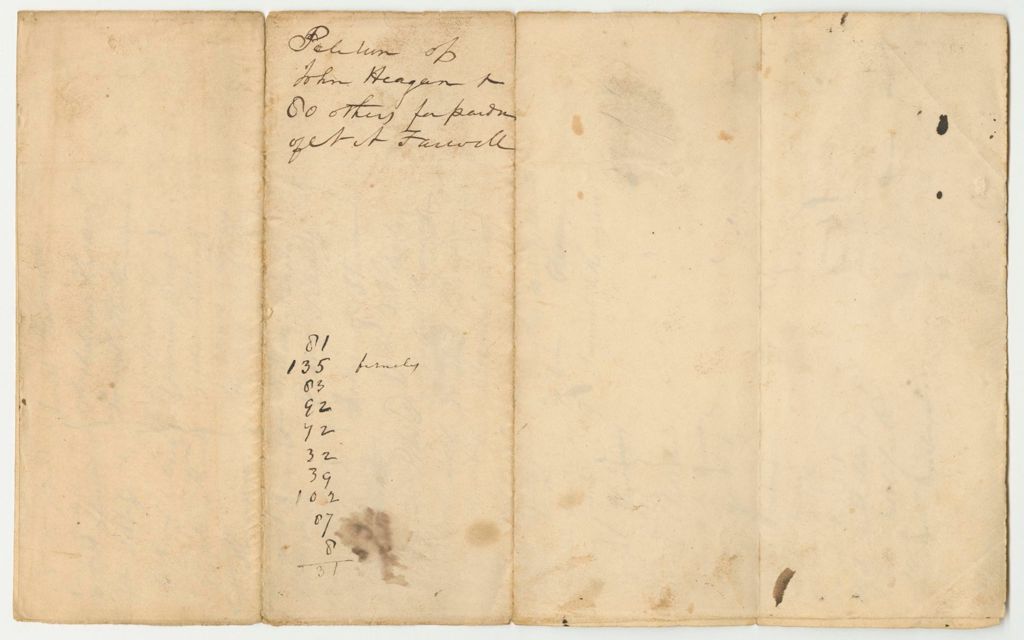 Petition of
John Heagan &
80 others for pardon
of N A Farwell
81
135 females
83
92
72
32
39
102
87
8
31